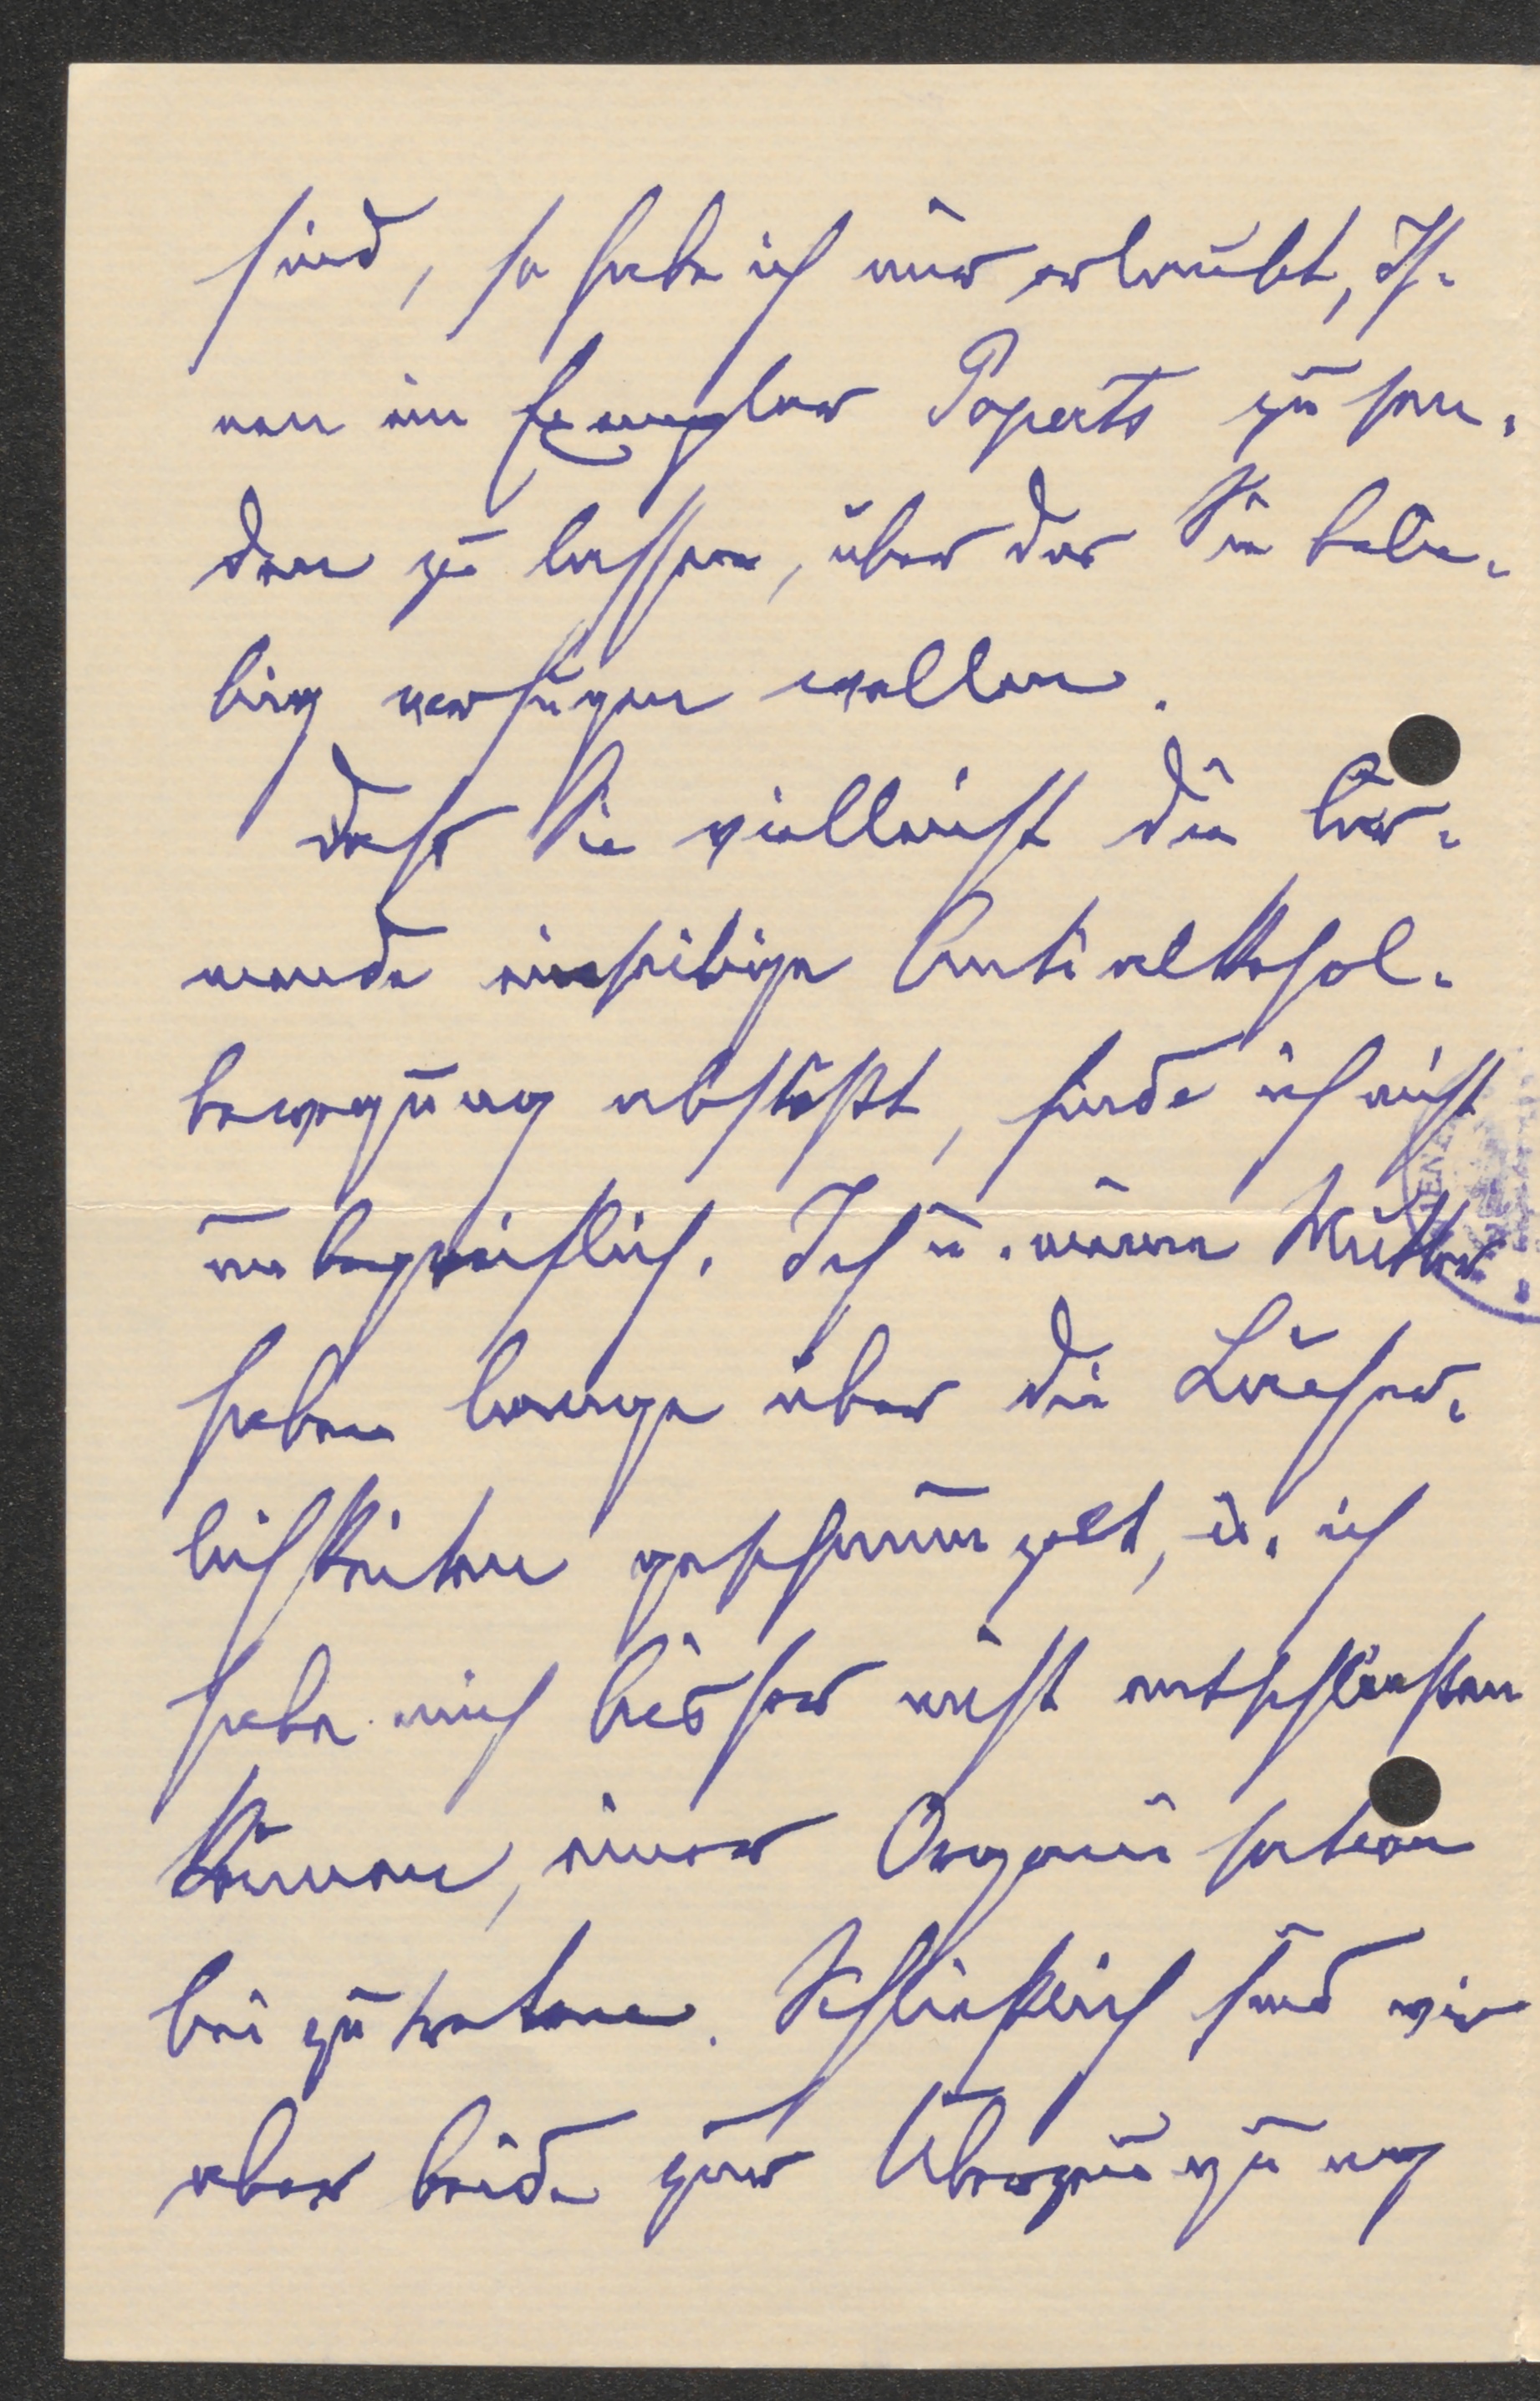 sind, so habe ich mir erlaubt, Ih-
nen ein Exemplar Poperts zu sen-
den zu lassen, über das Sie belie-
big verfügen wollen.
Dass Sie vielleicht die lär-
mende einseitige Antialkohol-
bewegung abstößt, finde ich nicht
unbegreiflich. Ich u. meine Mutter
haben lange über die Lächer-
lichkeiten geschmunzelt, u. ich
habe mich bisher nicht entschließen
können, einer Organisation
beizutreten. Schließlich sind wir
aber beide zur Überzeugung